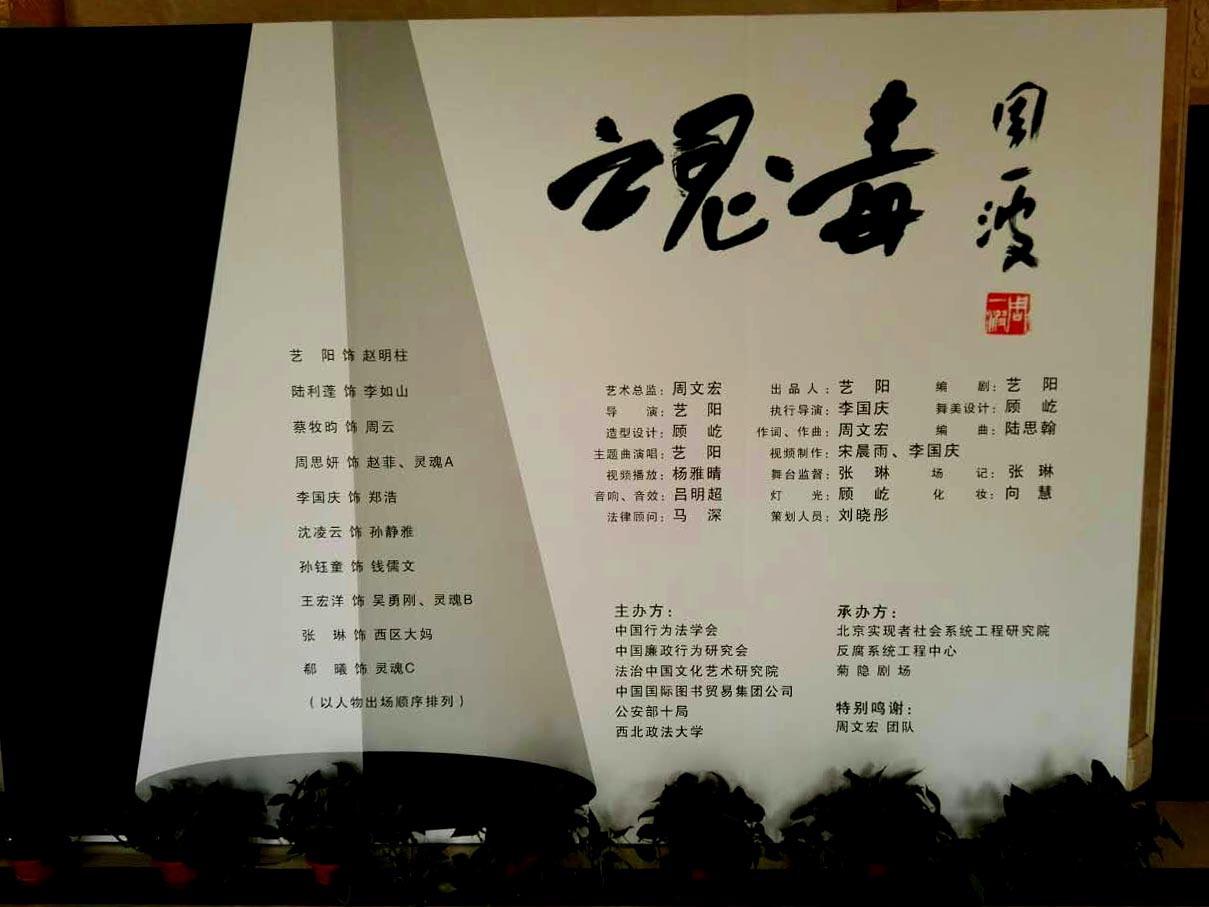 魂毒
周一波
周一波
艺 阳 饰 赵明柱
陆利蓬 饰 李如山
蔡牧昀 饰 周云
周思妍 饰 赵菲、灵魂A
李国庆 饰 郑浩
沈凌云 饰 孙静雅
孙钰童 饰 钱儒文
王宏洋 饰 吴勇刚、灵魂B
张 琳 饰 西区大妈
郗 曦 饰 灵魂C
（以人物出场顺序排列）
艺术总监：周文宏 出品人：艺 阳 编 剧：艺 阳
导 演：艺 阳 执行导演：李国庆 舞美设计：顾 屹
造型设计：顾 屹 作词、作曲：周文宏 编 曲：陆思翰
主题曲演唱：艺 阳 视频制作：宋晨雨、李国庆
视频播放：杨雅晴 舞台监督：张 琳 场 记：张 琳
音响、音效：吕明超 灯 光：顾 屹 化 妆：向 慧
法律顾问：马 深 策划人员：刘晓彤
主办方：
中国行为法学会
中国廉政行为研究会
法治中国文化艺术研究院
中国国际图书贸易集团公司
公安部十局
西北政法大学
承办方：
北京实现者社会系统工程研究院
反腐系统工程中心
菊隐剧场
特别鸣谢：
周文宏 团队